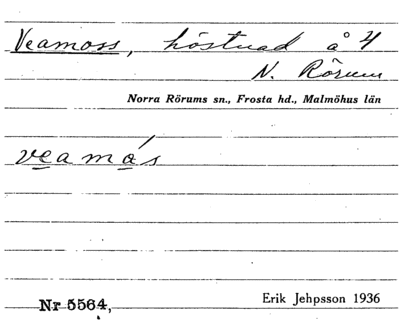 Veamoss, höstnad å 4
N. Rörum
Norra Rörums sn., Frosta hd., Malmöhus län
veamás
Nr 5564,
Erik Jehpsson 1936